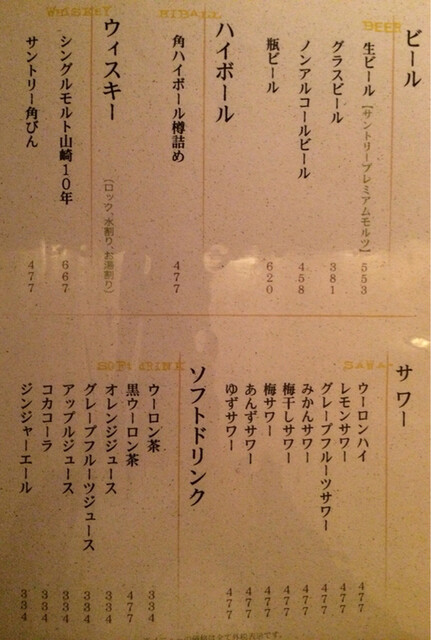 BEER
ビール
生ビール[サントリープレミアムモルツ] 553
グラスビール 381
ノンアルコールビール 458
瓶ビール 620
HIBALL
ハイボール
角ハイボール樽詰め 477
WHISKEY
ウィスキー
[ロック、水割り、お湯割り]
シングルモルト山崎10年 667
サントリー角びん 477
SAWA-
サワー
ウーロンハイ 477
レモンサワー 477
グレープフルーツサワー 477
みかんサワー 477
梅干しサワー 477
梅サワー 477
あんずサワー 477
ゆずサワー 477
SOFT DRINK
ソフトドリンク
ウーロン茶 334
黒ウーロン茶 477
オレンジジュース 334
グレープフルーツジュース 334
アップルジュース 334
コカコーラ 334
ジンジャーエール 334